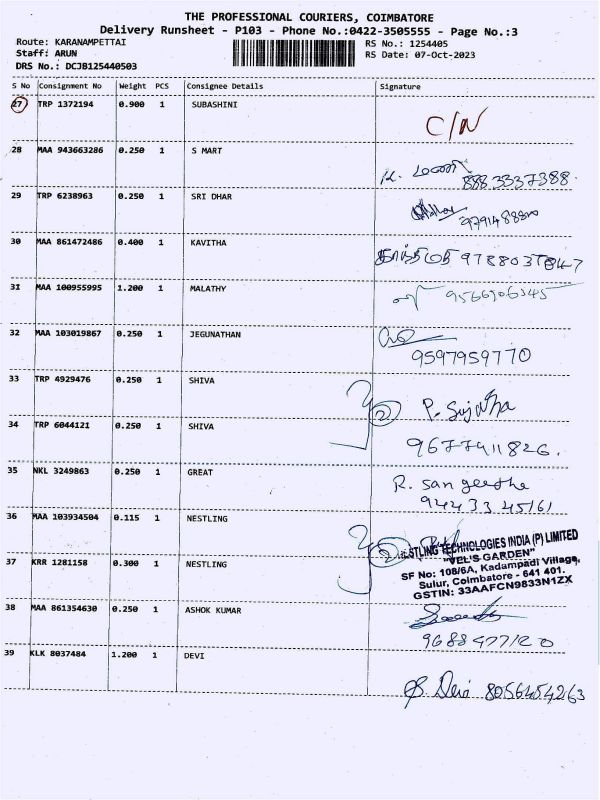 THE PROFESSIONAL COURIERS, COIMBATORE
Delivery Runsheet - P103 - Phone No.:0422-3505555 - Page No.:3
Route: KARANAMPETTAI RS No.: 1254405
Staff: ARUN RS Date: 07-Oct-2023
DRS No.: DCJB125440503
S No Consignment No Weight PCS Consignee Details Signature
27 TRP 1372194 0.900 1 SUBASHINI
C/N
28 MAA 943663286 0.250 1 S MART
888 3337388
29 TRP 6238963 0.250 1 SRI DHAR
30 MAA 861472486 0.400 1 KAVITHA
31 MAA 100955995 1.200 1 MALATHY
32 MAA 103019867 0.250 1 JEGUNATHAN
9597959770
33 TRP 4929476 0.250 1 SHIVA
2 P. Sujatha
34 TRP 6044121 0.250 1 SHIVA
9677411826.
35 NKL 3249863 0.250 1 GREAT
R. Sangeetha
94433 45161
36 MAA 103934504 0.115 1 NESTLING
2
NESTLING TECHNOLOGIES INDIA (P) LIMITED
37 KRR 1281158 0.300 1 NESTLING
"VEL'S GARDEN"
SF No: 108/6A, Kadampadi Village,
Sulur, Coimbatore - 641 401.
GSTIN: 33AAFCN9833N1ZX
38 MAA 861354630 0.250 1 ASHOK KUMAR
9688477120
39 KLK 8037484 1.200 1 DEVI
B. Devi 8056454263